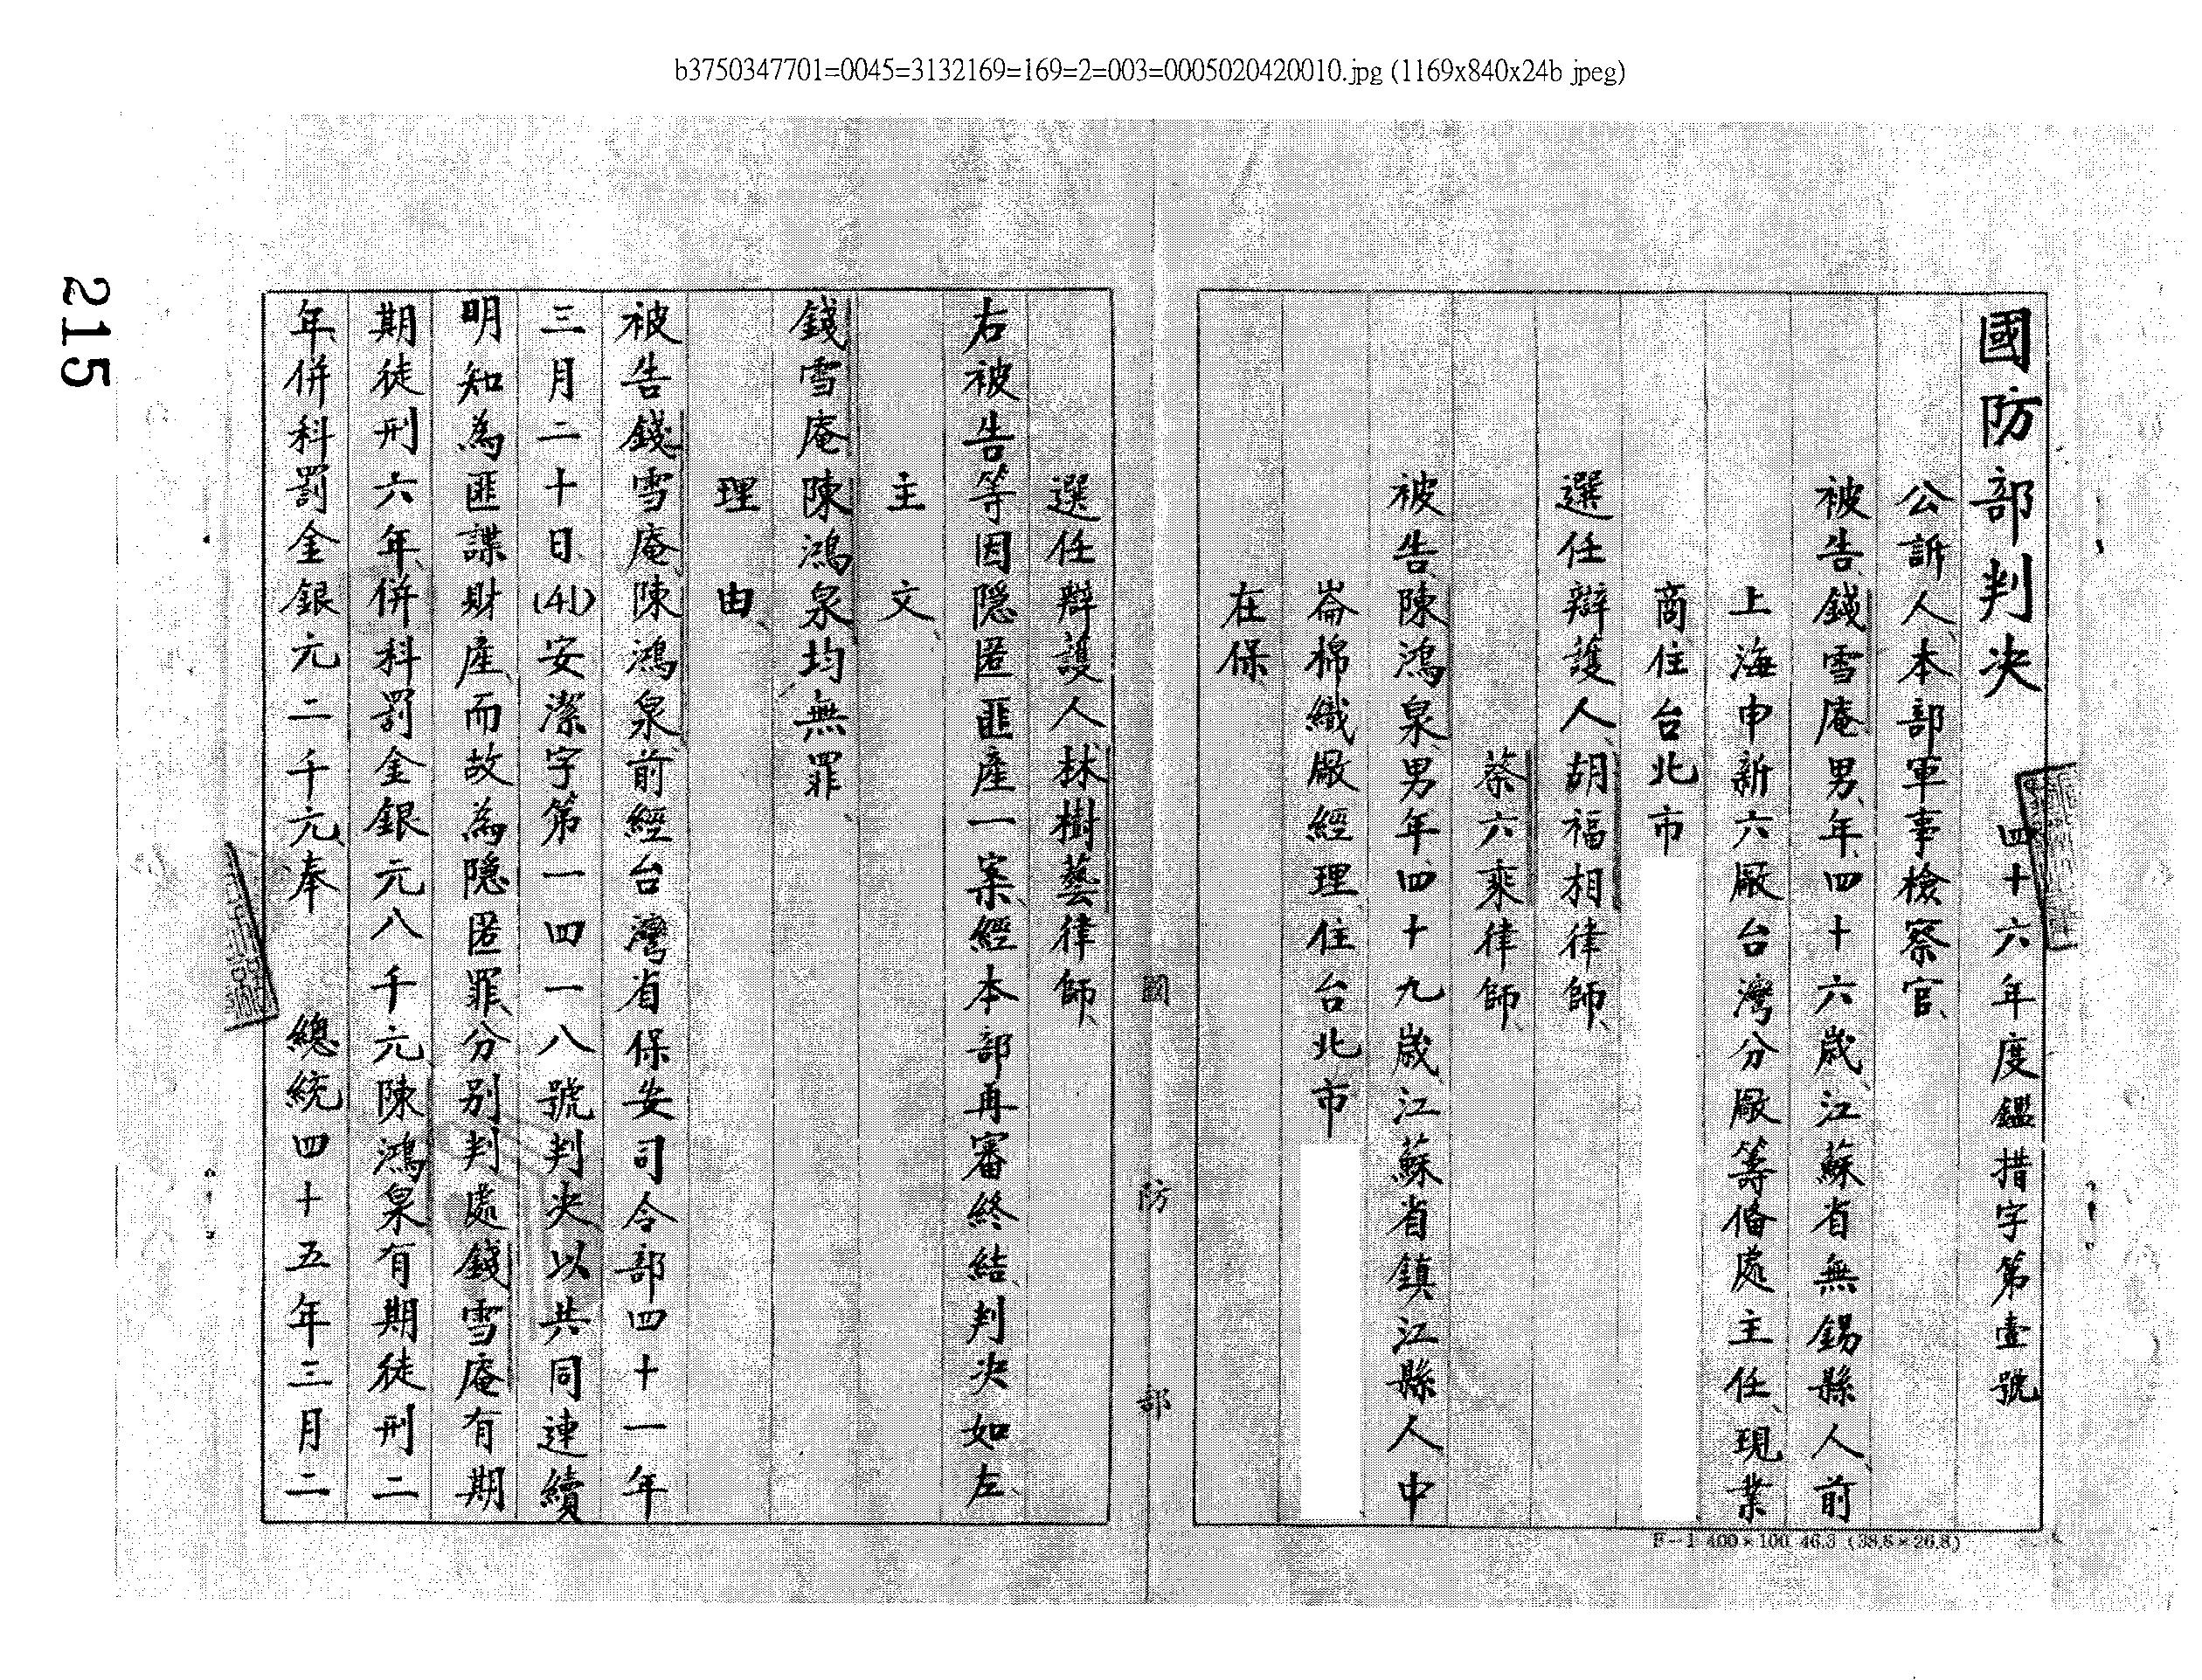 b3750347701=0045=3132169=169=2=003=0005020420010.jpg (1169x840x24b jpeg)
國防部判決 四十六年度鑑措字第壹號
公訴人、本部軍事檢察官、
被告、錢雪庵、男、年、四十六歲、江蘇省無錫縣人、前
上海申新六廠台灣分廠籌備處主任、現業
商住台北市
選任辯護人、胡福相律師、
蔡六乘律師、
被告、陳鴻泉、男年四十九歲、江蘇省鎮江縣人中
崙棉織廠經理、住台北市
在保
選任辯護人林樹藝律師、
右被告等因隱匿匪產一案、經本部再審終結、判決如左、
主文、
錢雪庵、陳鴻泉均無罪、
理由、
被告錢雪庵、陳鴻泉、前經台灣省保安司令部四十一年
三月二十日、(41)安潔字第一四一一八號判決以共同連續
明知為匪諜財產、而故為隱匿罪、分別判處錢雪庵有期
期徒刑六年、併科罰金銀元八千元、陳鴻泉有期徒刑二
年、併科罰金銀元二千元、奉 總統四十五年三月二
國防部
215
F-1 400×100 46.3 (38.6×26.8)